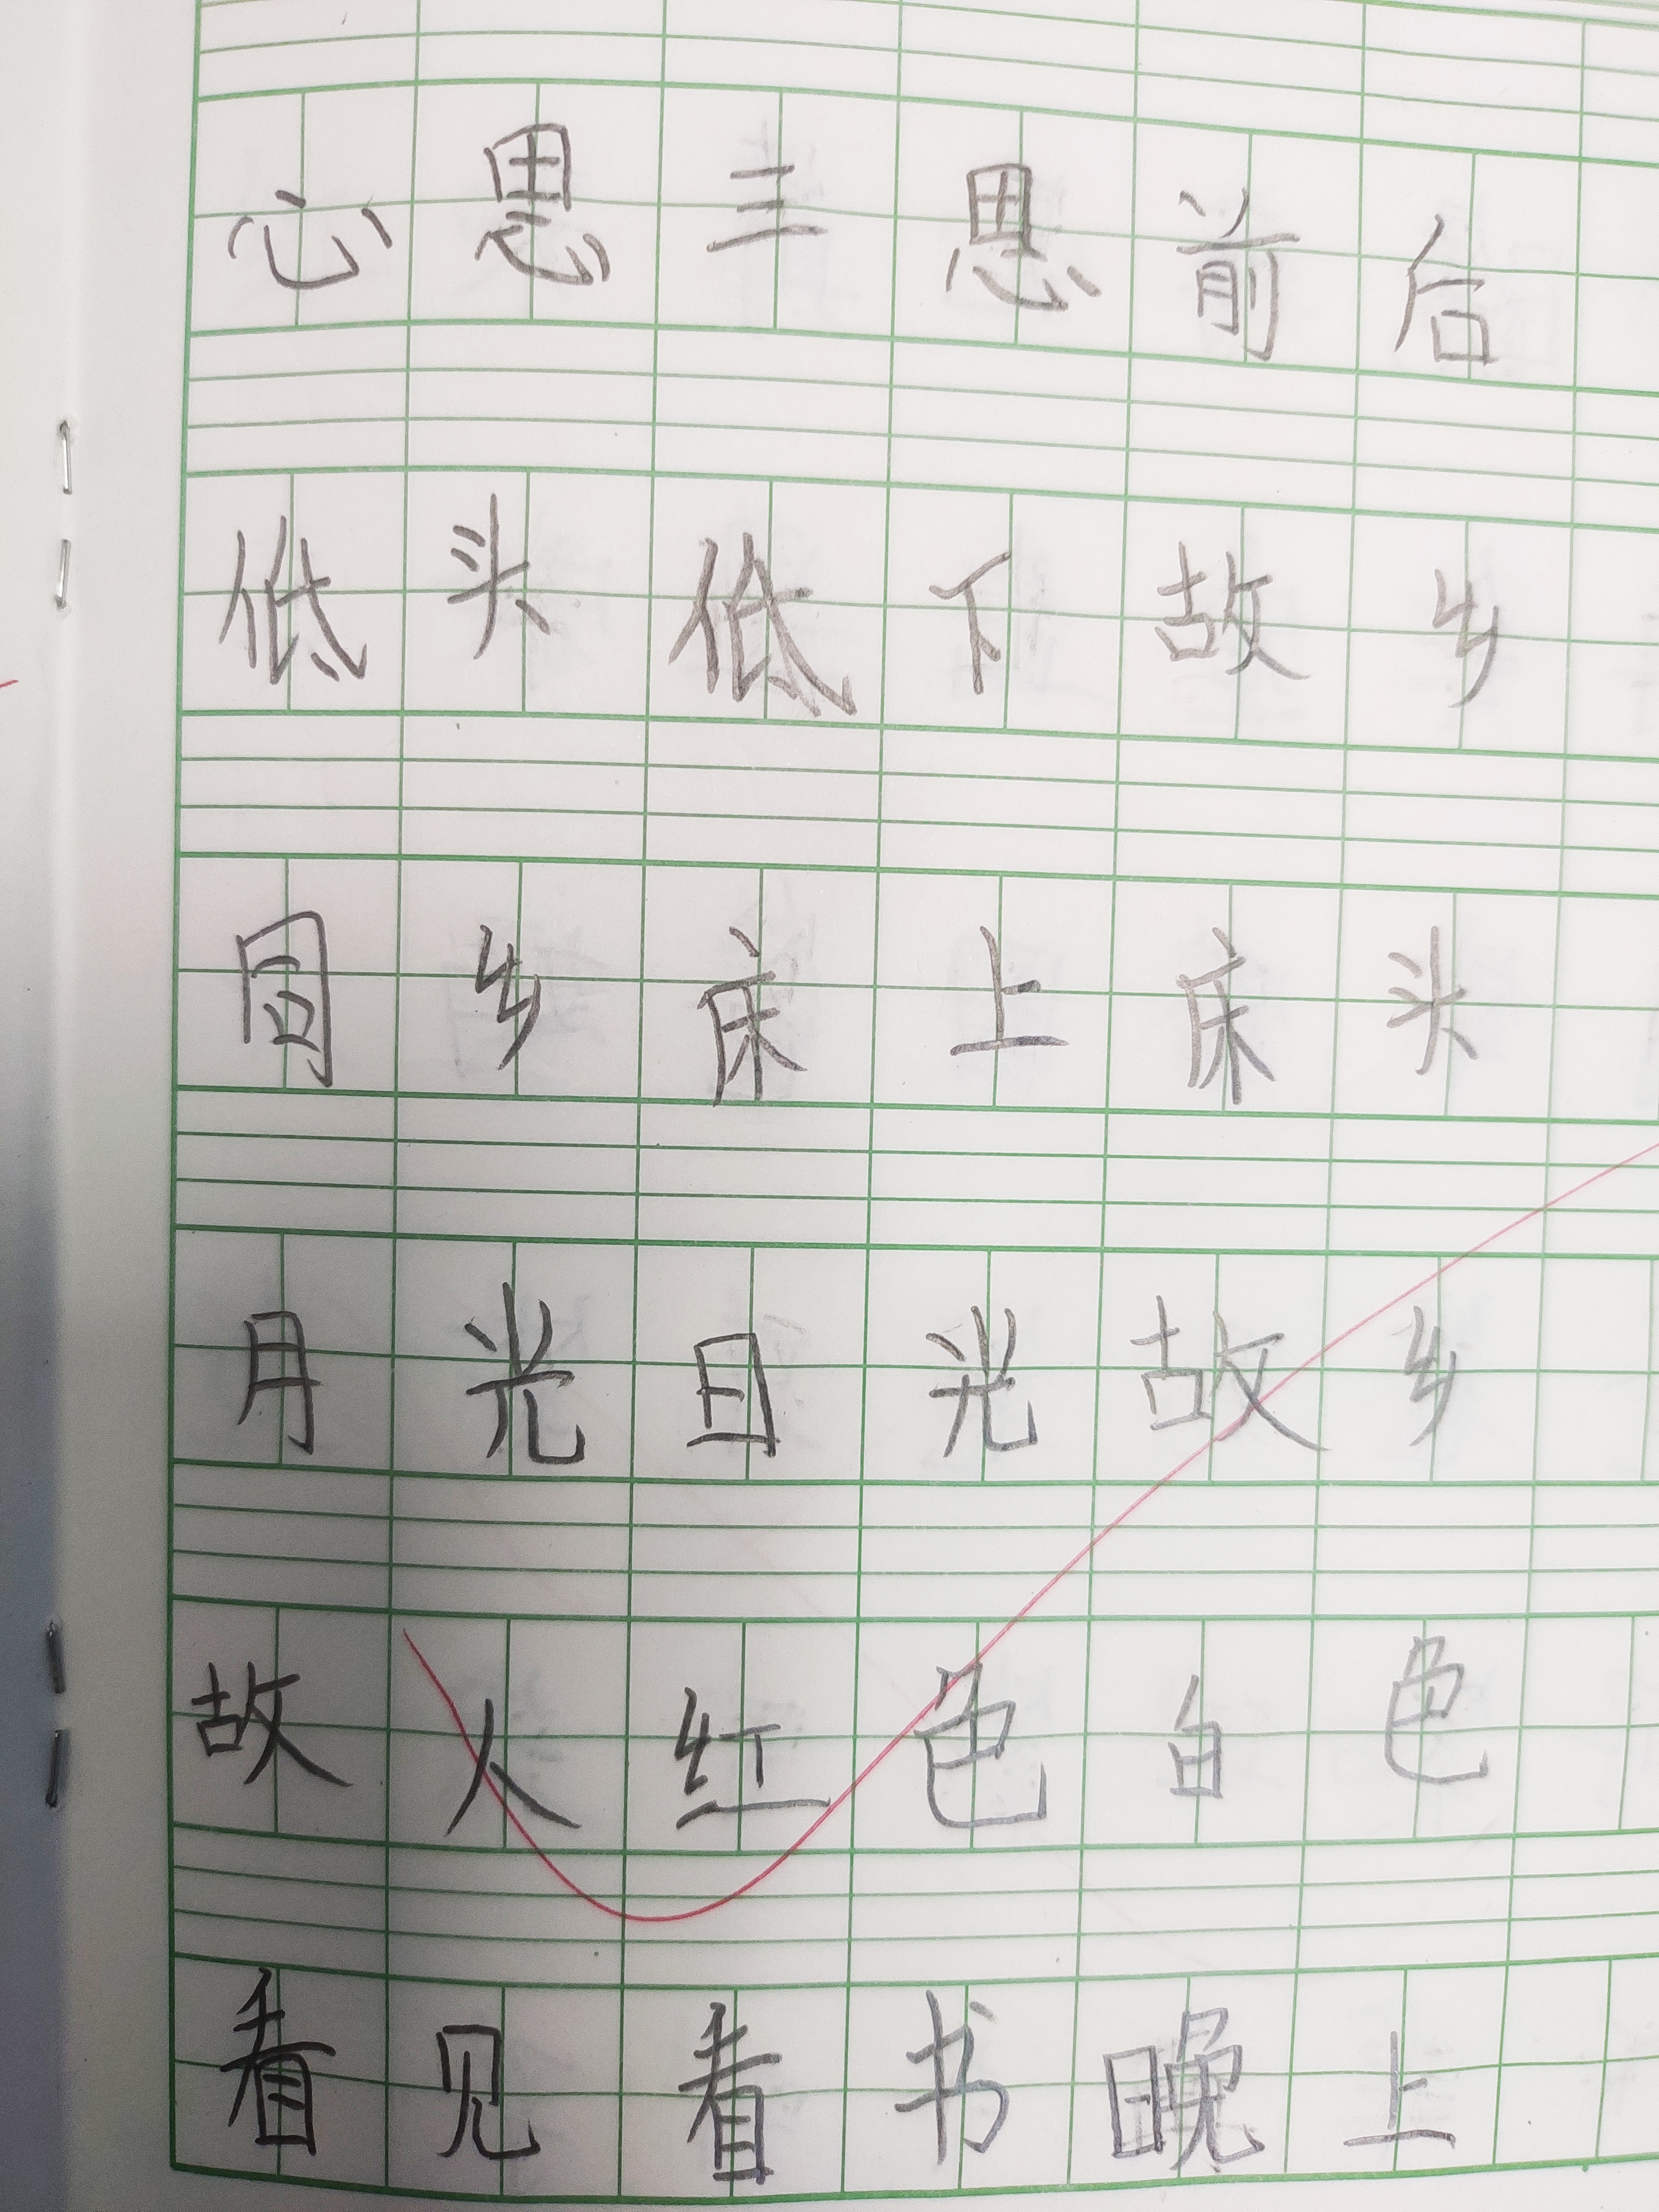 心思三思前后
低头低下故乡
同乡床上床头
月光日光故乡
故人红色白色
看见看书晚上